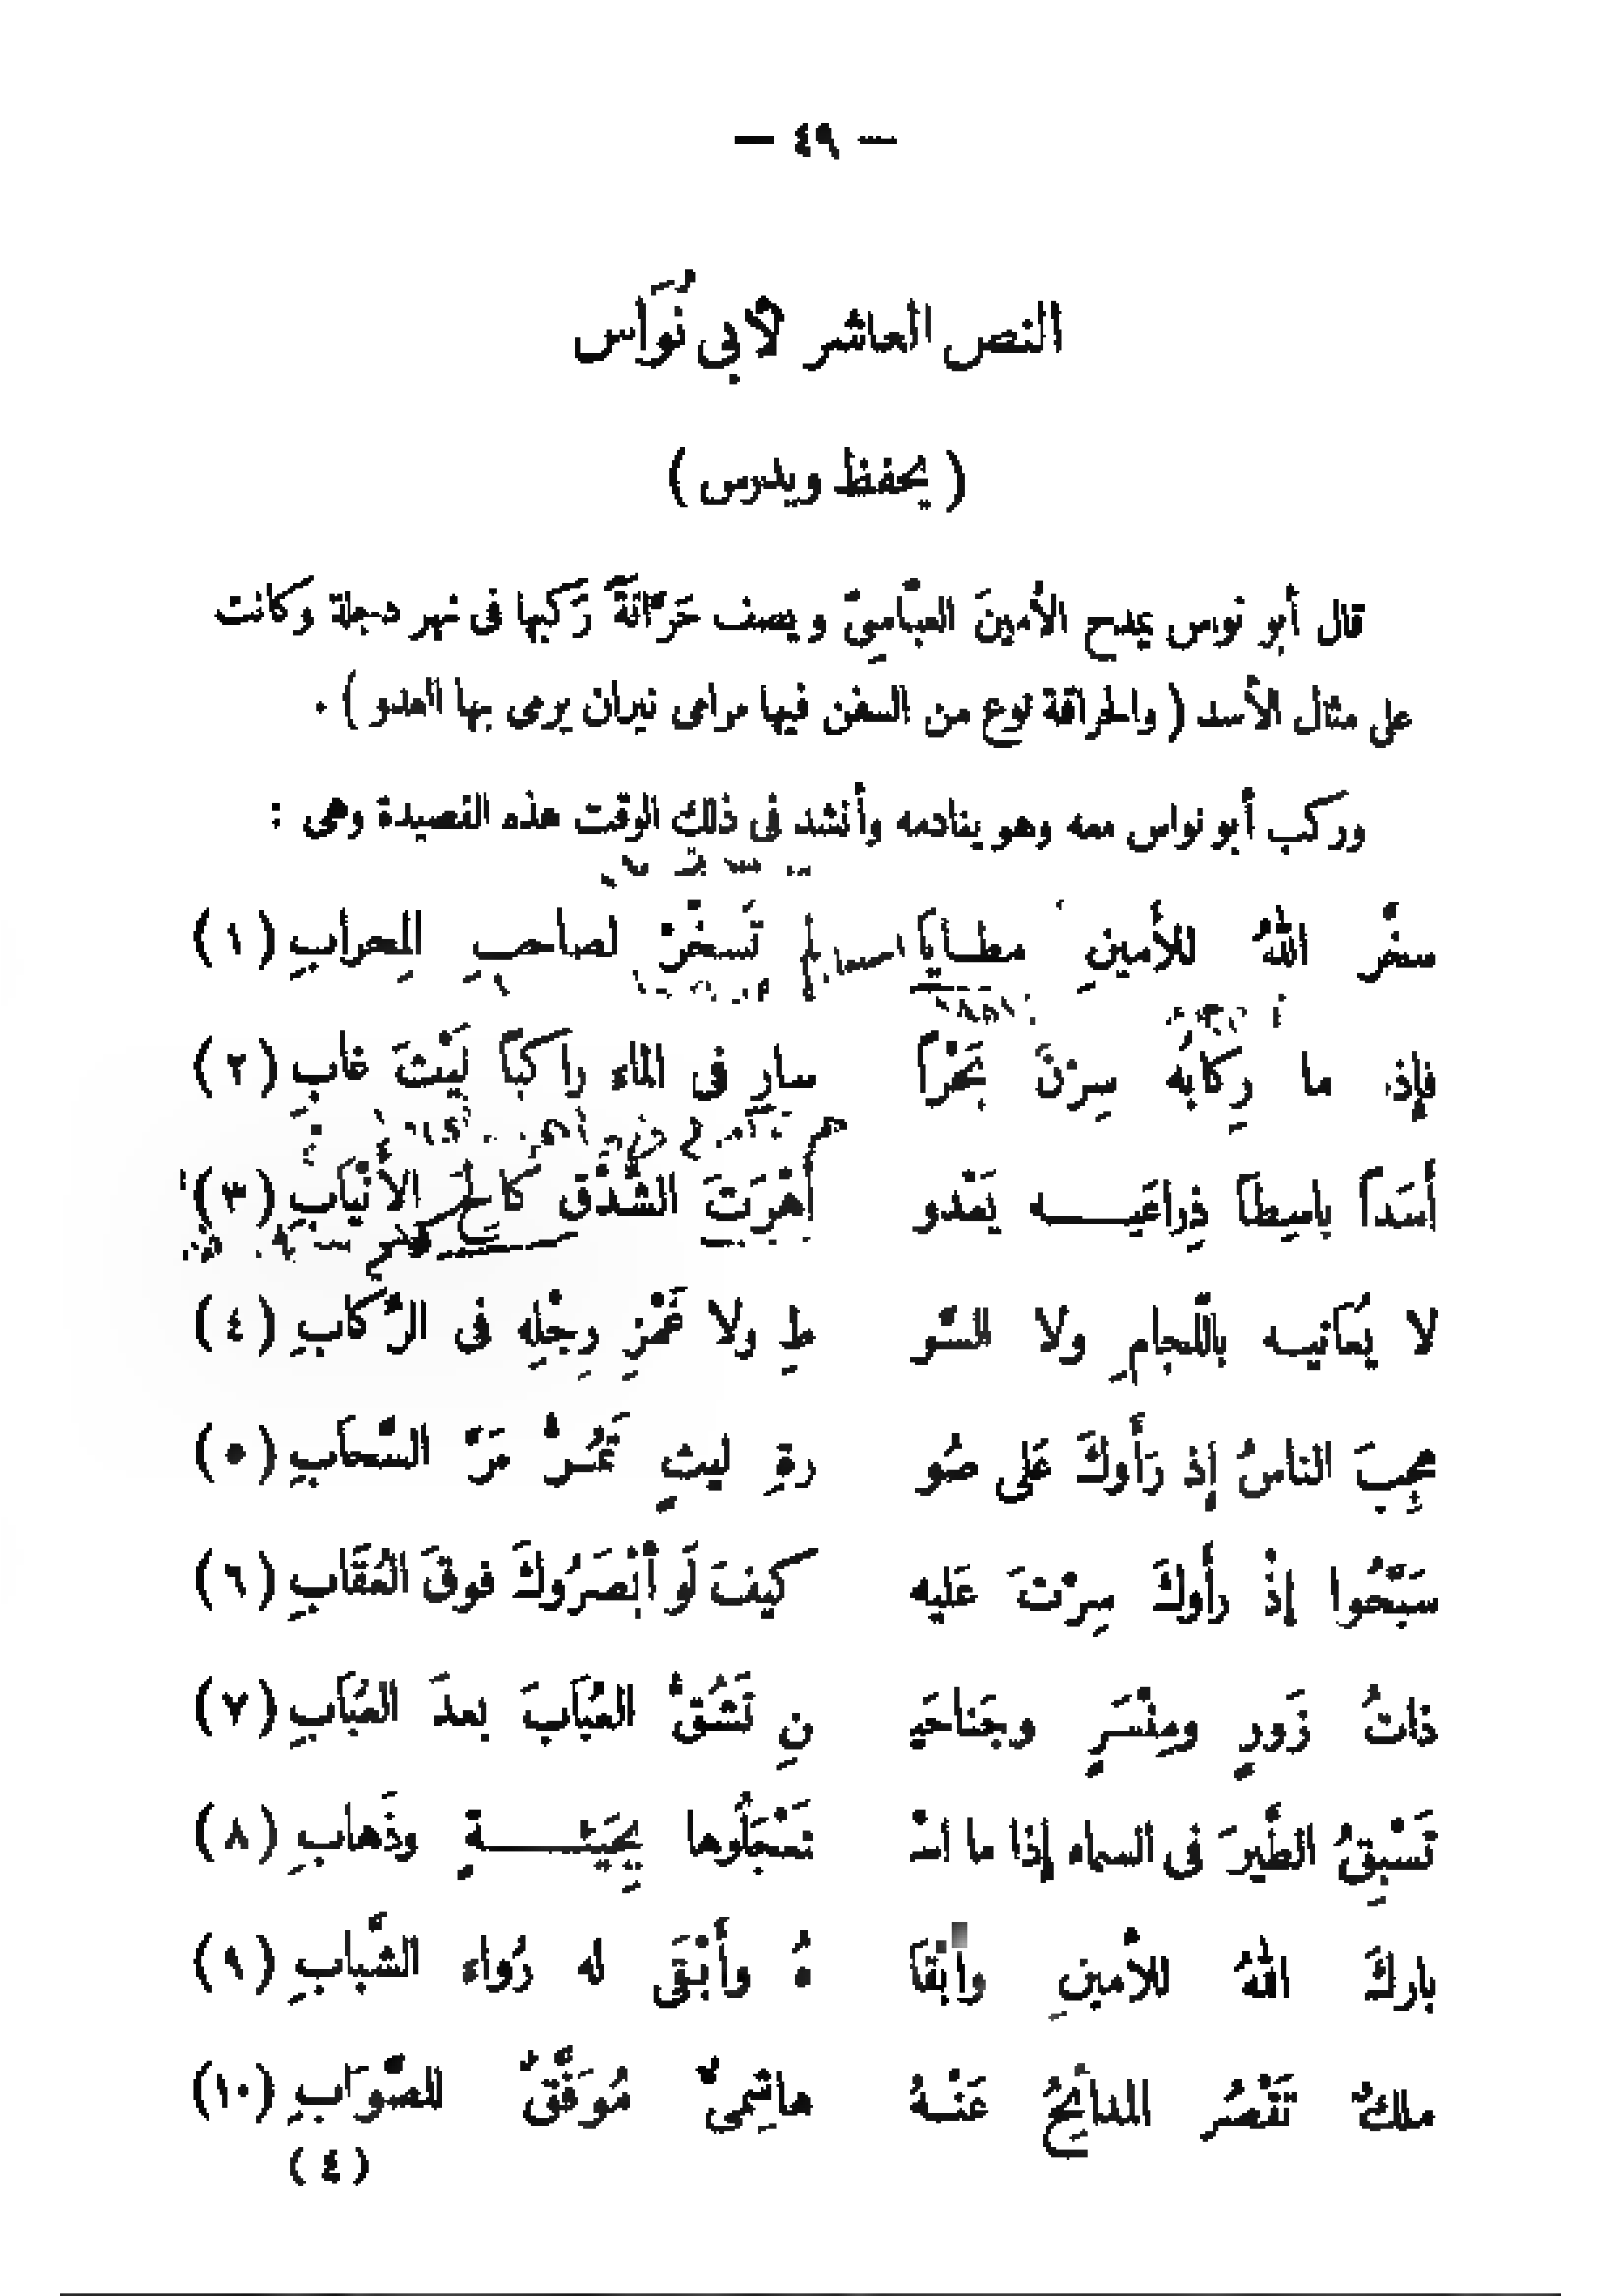 — ٤٩ —
النص العاشر لأبي نُوَاس
( يحفظ ويدرس )
قال أبو نواس يمدح الأمينَ العبّاسىّ ويصف حَرّاقةً رَكبها فى نهر دجلة وكانت
على مثال الأسد ( والحراقة نوع من السفن فيها مرامى نيران يرمى بها العدو ) .
وركب أبو نواس معه وهو ينادمه وأنشد فى ذلك الوقت هذه القصيدة وهى :
سخَّر اللهُ للأمينِ مطـايا لم تُسخَّرْ لصاحبِ المِحرابِ (١)
فإذا ما رِكَابُه سِرْنَ بَحْرًا سارِ فى الماء راكبًا لَيْثَ غابِ (٢)
أسَدًا باسِطًا ذِراعَيـــه يَعْدو أَهْرَتَ الشِّدْقِ كالحَ الأَنْيَابِ (٣)
لا يُعانيـه باللّجامِ ولا السَّو طِ ولا غَمْزِ رِجْلِهِ فى الرِّكَابِ (٤)
عجِبَ الناسُ إذ رَأَوكَ عَلى صُو رةِ ليثٍ تَمُـرُّ مَرَّ السَّحابِ (٥)
سَبَّحُوا إذْ رأَوكَ سِرْتَ عَليه كيفَ لَو أَبْصَرُوكَ فوقَ العُقَابِ (٦)
ذاتُ زَورٍ ومِنْسَرٍ وجَناحَيـ نِ تَشُقُّ العُبَابَ بعدَ العُبَابِ (٧)
تَسْبِقُ الطَّيرَ فى السماء إذا ما اسْـ تَعْجَلُوها بِجَيْئـــةٍ وذَهابِ (٨)
باركَ اللهُ للأَمينِ وأبْقا هُ وأَبْقَى له رُواء الشَّبابِ (٩)
ملكٌ تَقْصُر المدائِحُ عَنْـهُ هاشِمىٌّ مُوَفَّقٌ للصَّوَابِ (١٠)
(٤)